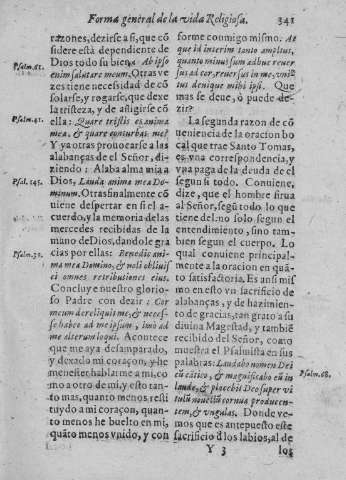 Forma general de la vida Religiosa. 341
razones, dezirse a si, que cõ
sidere está dependente de
Psalm. 61. Dios todo su bien. Ab ipso
enim salutare meum. Otras ve
zes tiene necesidad de cõ
solarse, y rogarse, que dexe
la tristeza, y de afligirse cõ
Psalm. 41. ella: Quare tristis es anima
mea, & quare conturbas me?
Y ya otras prouocarse a las
alabanças de el Señor, di-
ziendo: Alaba alma mia a
Psal. 145. Dios, Lauda anima mea Do-
minum. Otras finalmente cõ
uiene despertar en si el a-
cuerdo, y la memoria de las
mercedes recibidas de la
mano de Dios, dandole gra
Psalm. 31. cias por ellas: Benedic ani-
ma mea Domino, & noli obliuis
ci omnes retributiones eius.
Concluye nuestro glorio-
so Padre con dezir: Cor
meum dereliquit me, & neces-
se habeo ad me ipsum, imò ad
me alterum loqui. Acontece
que me aya desamparado,
y dexado mi coraçon, y he
menester hablarme a mi, co
mo a otro de mi, y esto tan-
to mas, quanto menos resti
tuydo a mi coraçon, quan-
to menos he buelto en mi,
quãto menos vnido, y con
forme conmigo mismo. At-
que id inserim tanto amplius,
quanto minus sum adhuc reuer
sus ad cor, reuersus in me, vni-
tus denique mihi ipsi. Que
mas se deue, ò puede de-
zir?
La segunda razon de cõ
ueniencia de la oracion bo
cal que trae Santo Tomas,
es vna correspondencia, y
vna paga de la deuda de el
segun si todo. Conuiene,
dize, que el hombre sirua
al Señor, segũ todo lo que
tiene del: no solo segun el
entendimiento, sino tam-
bien segun el cuerpo. Lo
qual conuiene principal-
mente a la oracion en quã-
to satisfactoria. Es ansi mis
mo en esto vn sacrificio de
alabanças, y de hazimien-
to de gracias, tan grato a su
diuina Magestad, y tambiẽ
recibido del Señor, como
muestra el Psalmista en sus
palabras: Laudabo nomen Dei
cũ cãtico, & magnificabo eũ in Psalm. 68.
laude, & placebit Deo super vi
tulũ nouellũ cornua producen-
tem, & vngulas. Donde ve-
mos que es antepuesto este
sacrificio d los labios, al de
Y 3 los